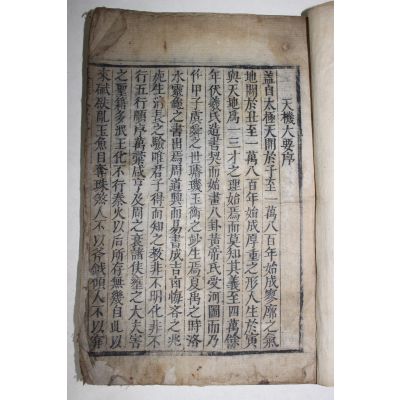 天機大要序
盖自太極天開於子至一萬八百年始成寥廓之氣
地闢於丑至一萬八百年始成厚重之形人生於寅
與天地爲一三才之理始焉而莫知其義至四萬餘
年伏羲氏造書契而始畫八卦黃帝氏受河圖而乃
作甲子虞舜之世璿璣玉衡之妙生焉夏禹之時洛
水靈龜之書出焉周道興而易書成吉凶悔吝之兆
生消長之驗唯君子得而知之敎非不明化非不
行五行順序萬彙咸亨及周之衰諸侯之大夫害
之聖籍多泯王化不行秦火以后所存無幾自此以
來碔砆亂玉魚目奪珠煞人不以斧鉞頭人不以